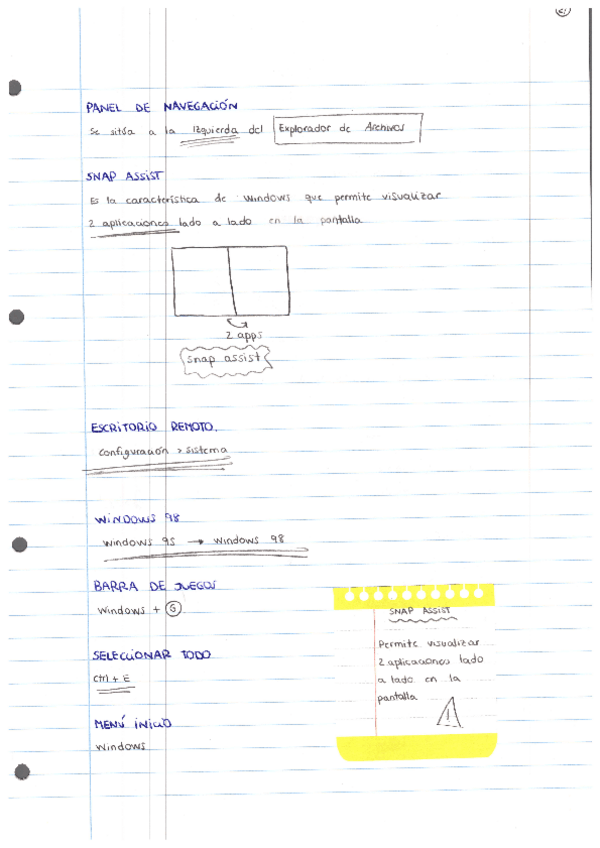 PANEL DE NAVEGACIÓN
Se sitúa a la Izquierda del Explorador de Archivos
SNAP ASSIST
Es la característica de Windows que permite visualizar
2 aplicaciones lado a lado en la pantalla
2 apps
snap assist
ESCRITORIO REMOTO.
Configuración > Sistema
WINDOWS 98
Windows 95 → Windows 98
BARRA DE JUEGOS
Windows + G
SELECCIONAR TODO
Ctrl + E
MENÚ INICIO
Windows
SNAP ASSIST
Permite visualizar
2 aplicaciones lado
a lado en la
pantalla
!